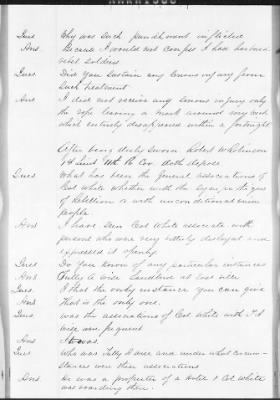 Ques Why was such punishment inflicted
Ans Because I would not confess I have harbored
rebel soldiers
Ques Did you sustain any serious injury from
such treatment
Ans I did not receive any serious injury only
the rope leaving a mark around my neck
which entirely disappeared within a fortnight
After being duly sworn Robert W Robinson
1st Lieut Cav doth depose
Ques What has been the general associations of
Col White whether with the sympathizers
of Rebellion or with unconditional union
people
Ans I have seen Col White associate with
persons who were very bitterly disloyal and
expressed it openly
Ques Do you know of any particular instances
Ans Tully a wise Landlord at
Ques Is that the only instance you can give
Ans That is the only one.
Ques was the associations of Col White with T A
wise are frequent
Ans It was.
Ques Who was Tully A wise and under what circum-
stances were their associations
Ans He was a proprietor of a Hotel & Col White
was boarding there.